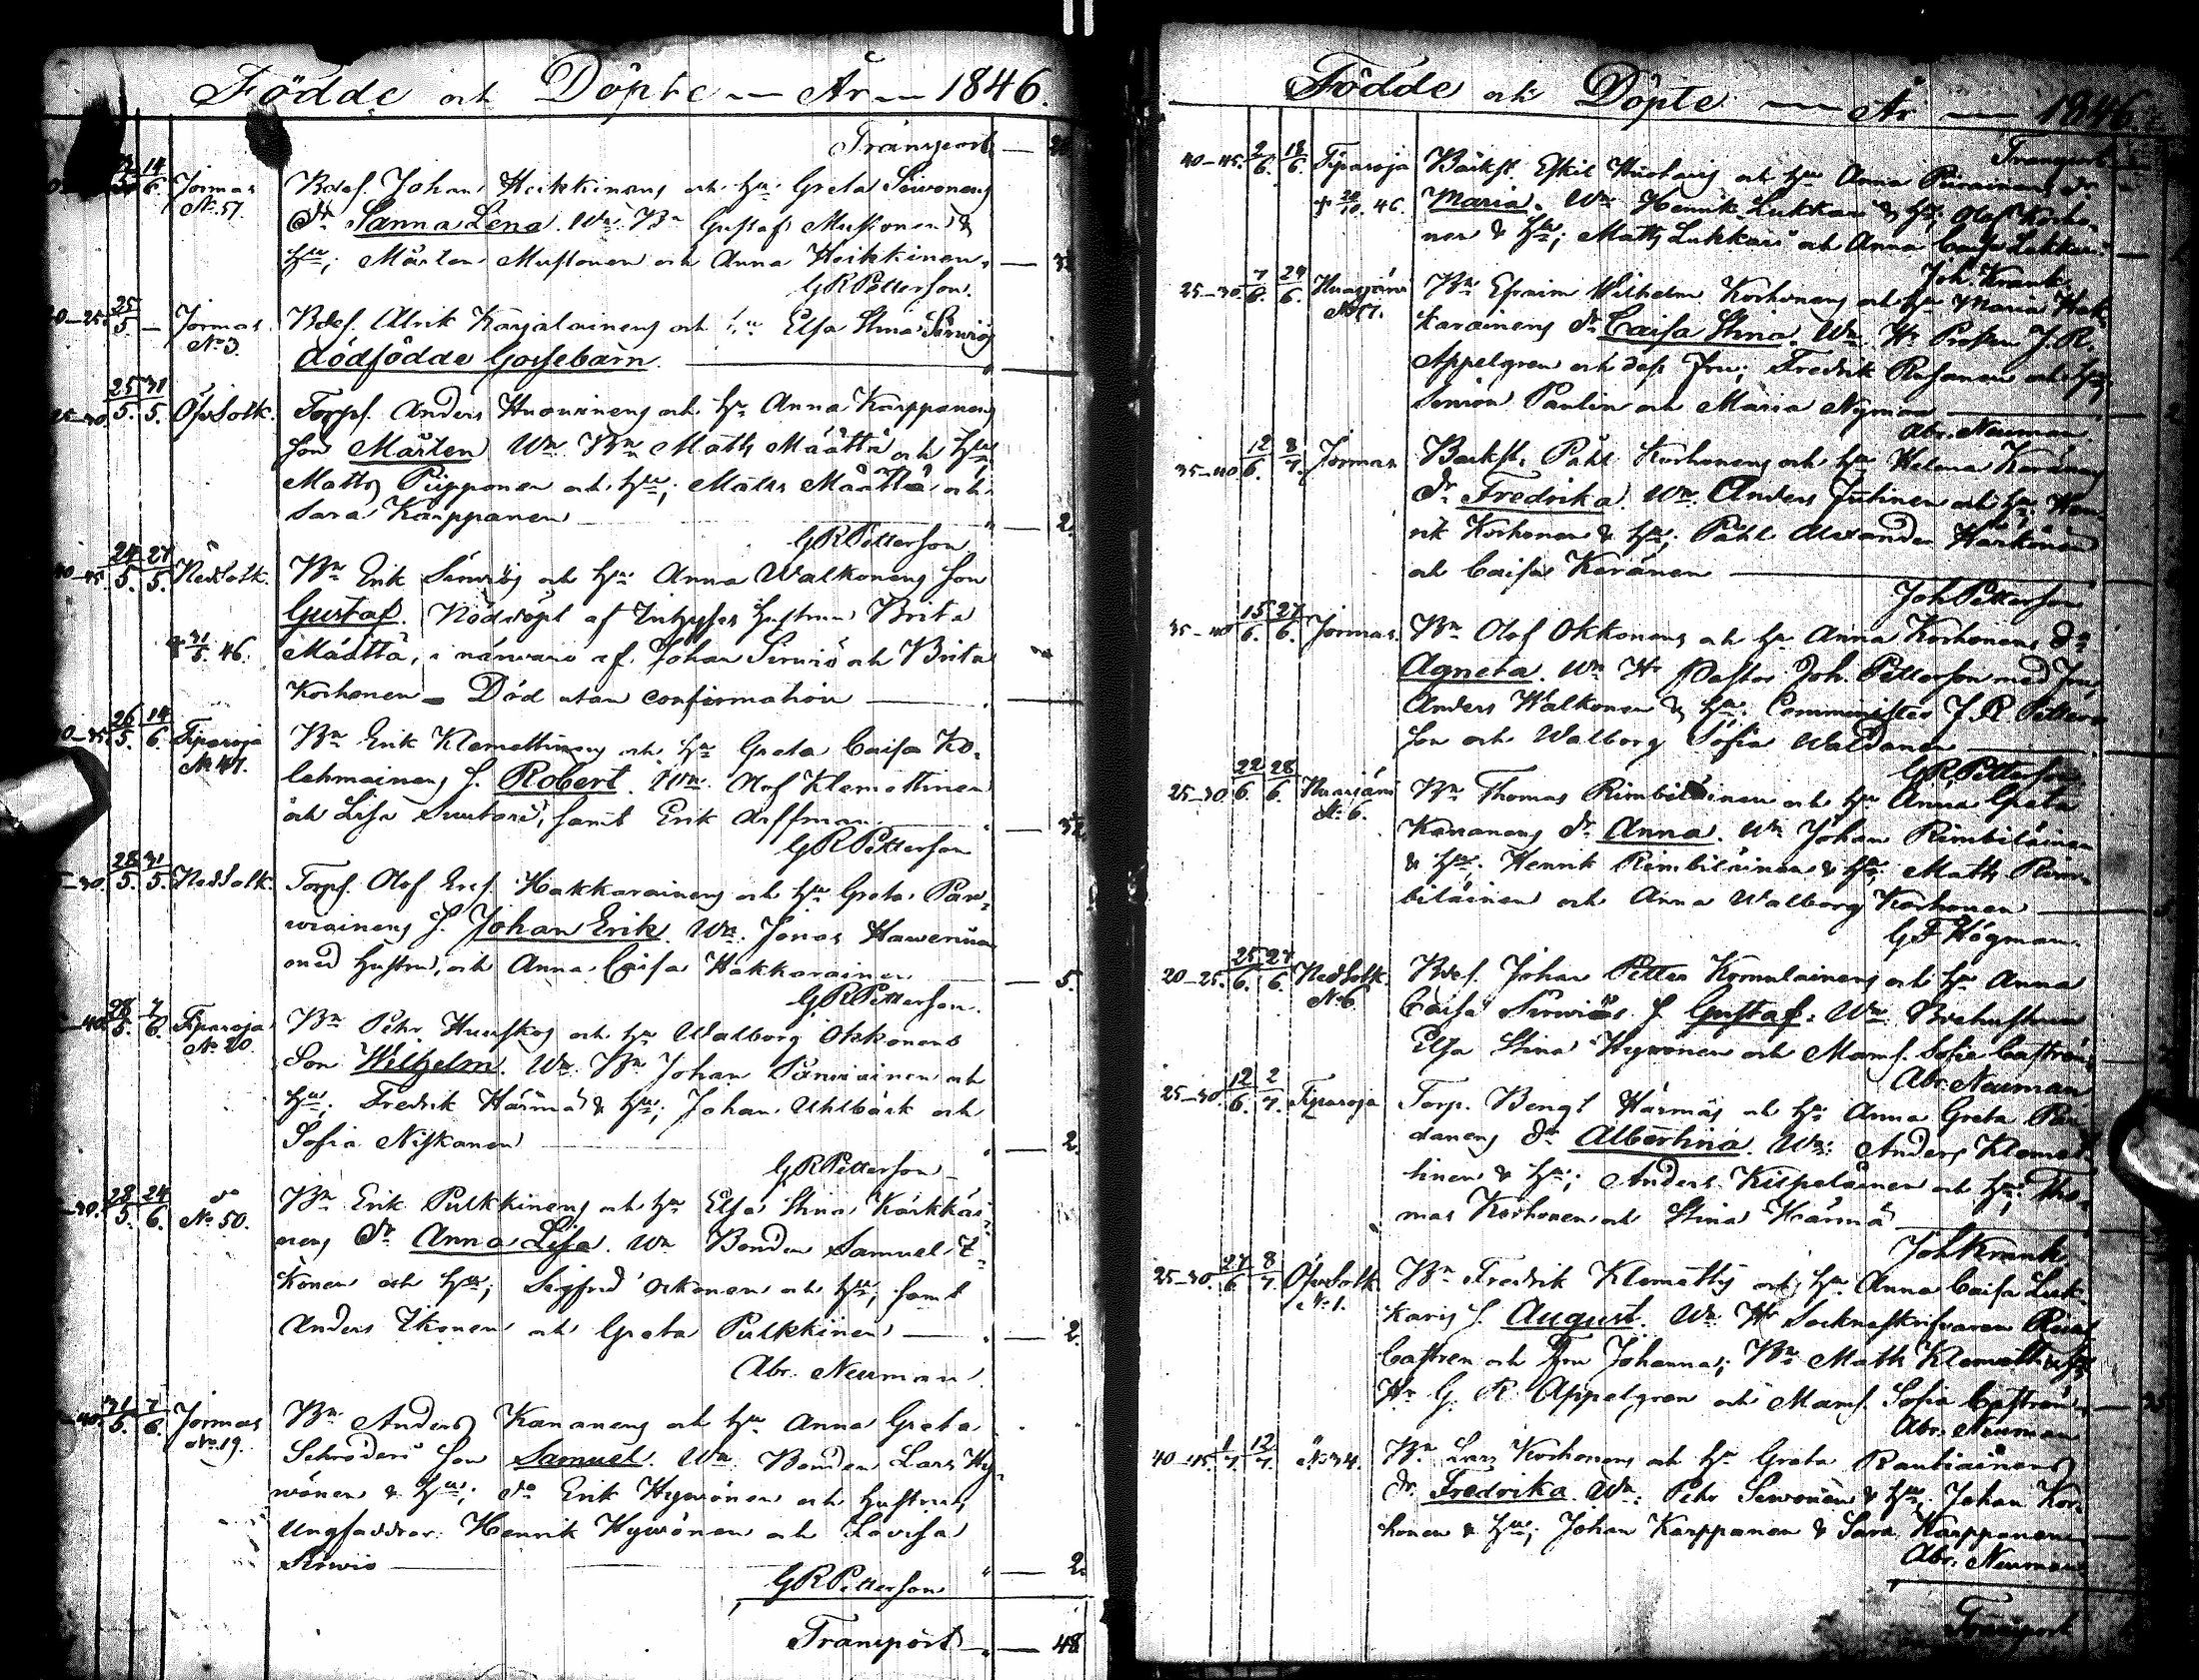 Födde och Döpte — År — 1846.
Transport —
14/6. Jormas Bdef. Johan Heikkinens och hu: Greta Sirvöneng
No. 57. dr. Sanna Lena. Wn: Bn Gustaf Mustonen &
hu; Mårten Mustonen och Anna Heikkinen.
G R Petterson.
25/5 — Jormas Bdef. Alrik Karjalainens och hu Elsa Stina Sirviös
No 3. dödfödde Gossebarn.
25/5. 31/5. Öfv Sotk. Torpf. Anders Huovinens och hu Anna Karppanens
son Mårten Wn Bn Matts Määttä och hu
Matts Piipponen och hu; Matts Määttä och
Sara Karppanen — 2.
G R Petterson
24/5. 27/5. Ned Sotk. Bn Erik Sirviös och hu: Anna Walkonens son
Gustaf. Nöddöpt af Hustrun Brita
31/5. 46. Määttä, i närvaro af Johan Sirviö och Brita
Korhonen — Död utan confirmation —
26/5. 14/6. Tiparoja Bn Erik Klemettinens och hu Greta Caisa Ko-
No 47. lehmainens s. Robert. Wn. Olof Klemettinen
och Lisa Suutari, samt Erik Arffman.
G R Petterson
28/5. 31/5. Ned Sotk. Torpf. Olof Hakkarainens och hu Greta Par-
viainens s. Johan Erik. Wn. Jonas Haverinen
med hustru, och Anna Caisa Hakkarainen — 5.
G. R. Petterson.
28/5. 7/6. Tiparoja Bn Pehr Huuskos och hu Walborg Okkonens
No 20. Son Wilhelm. Wn. Bn Johan Parviainen och
hu; Fredrik Härmä & hu; Johan Uhlbäck och
Sofia Niskanen — 2.
G R Petterson
28/5. 24/6. do Bn Erik Pulkkinens och hu Elsa Stina Kärkkäi-
No 50. nens dr Anna Lisa. Wn Bonden Samuel I-
konen och hu; Sigfrid Ockonen och hu; samt
Anders Ikonen och Greta Pulkkinen — 2.
Abr. Neuman.
31/5. 7/6. Jormas Bn Anders Kananens och hu Anna Greta
No. 19. Schröders son Samuel. Wn. Bonden Lars Hy-
vönen & hu; do Erik Hyvönen och hustru;
Ungfaddrar: Henrik Hyvönen och Lovisa
Sirviö — 2.
G R Petterson
Transport — 48
Födde och Döpte — År — 1846.
Transport
40—45. 2/6. Tiparoja Backst. Eskil och hu Anna Piirainens dr
20/10. 46. Maria. Wn Henrik Lukkari & hu; Olof Korho-
nen & hu; Matts Lukkari och Anna Caisa Lukkari
Joh. Krank.
25—30. 7/6. 29/6. Bn Efraim Wilhelm Korhonens och hu Maria Hak-
No 17. karainens dr Caisa Stina. Wn. Hr Prosten J. R.
Appelgren och dess Fru; Fredrik Rusanen och hu;
Simon Paulin och Maria Nyman —
Abr. Neuman.
35—40 12/6. 8/7. Jormas Backst. Påhl Korhonens och hu Helena Keränens
dr. Fredrika. Wn. Anders Juhinen och hu; Hen-
rik Korhonen & hu; Påhl Alexander Härkönen
och Caisa Keränen —
Joh Petterson
35—40 15/6. 27/6. Jormas. Bn Olof Okkonens och hu Anna Korhonens dr
Agneta. Wn Hr Pastor Joh. Petterson med Fru;
Anders Walkonen & hu; Comminister G R Petter-
son och Walborg Sofia —
G R Petterson
25—30 22/6. 28/6. Bn Thomas Rimbiläinen och hu Anna Greta
No 6. Kananens dr Anna. Wn Johan Rimbiläinen
& hu; Henrik Rimbiläinen & hu; Matts Rim-
biläinen och Anna Walborg Korhonen —
G F Högman.
20—25. 25/6. 27/6. Ned Sotk. Bdef. Johan Petter Komulainens och hu Anna
No 6. Caisa Sirviös s. Gustaf. Wn. Bondhustrun
Elsa Stina Hyvönen och Mams. Sofia Castrén
Abr. Neuman
25—30. 12/6. 2/7. Tiparoja Torp. Bengt Härmäs och hu Anna Greta Par-
danens dr Albertina. Wn: Anders Klemet-
tinen & hu; Anders Kilpeläinen och hu; Tho-
mas Korhonen och Stina Härmä
Joh Krank
25—30. 27/6 8/7 Öfv Sotk Bn Fredrik Klemettis och hu Anna Caisa Luk-
No 1. karis s. August. Wn. Hr Socknskrifvaren
Castren och Fru Johanna; Bn Matts Klemetti & hu
Hr G. R. Appelgren och Mams. Sofia Castrén
Abr. Neuman
40—45. 1/7. 12/7. No 34. Bn Lars Korhonens och hu Greta Rautiainens
dr. Fredrika. Wn: Pehr Sirvönen & hu; Johan Kor-
honen & hu; Johan Karppanen & Sara Karppanen —
Abr. Neuman
Transport